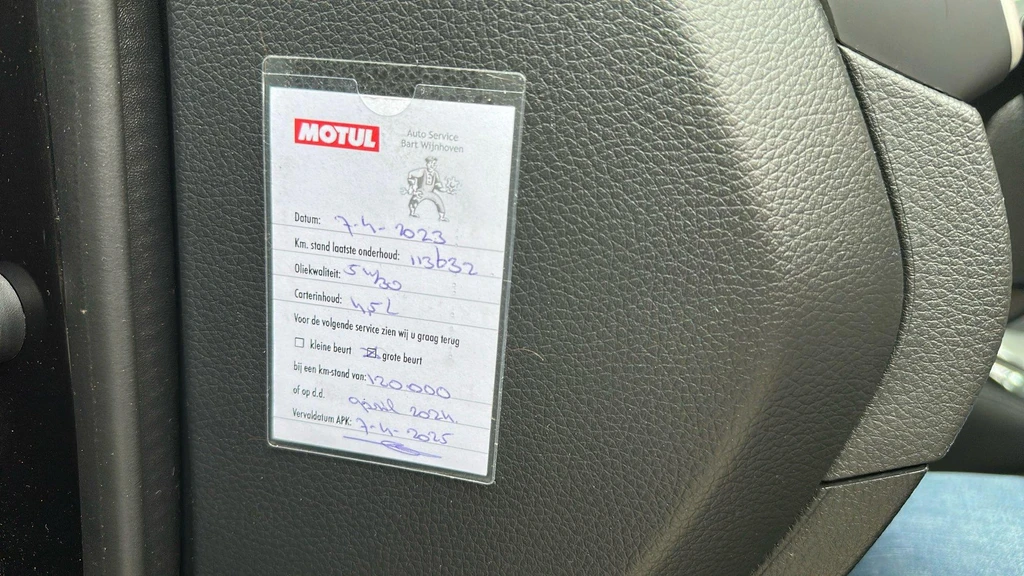 MOTUL
Auto Service
Bart Wijnhoven
Datum: 7-4-2023
Km. stand laatste onderhoud: 113632
Oliekwaliteit: 5w/30
Carterinhoud: 4,5L
Voor de volgende service zien wij u graag terug
kleine beurt grote beurt
bij een km-stand van: 120.000
of op d.d. april 2024.
Vervaldatum APK: 7-4-2025